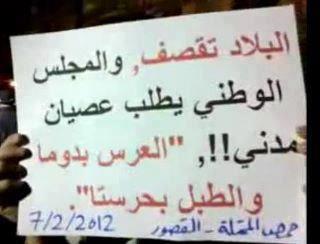 البلاد تقصف, والمجلس
الوطني يطلب عصيان
مدني!!, "العرس بدوما
والطبل بحرستا".
حمص المحتلة - القصور 7/2/2012